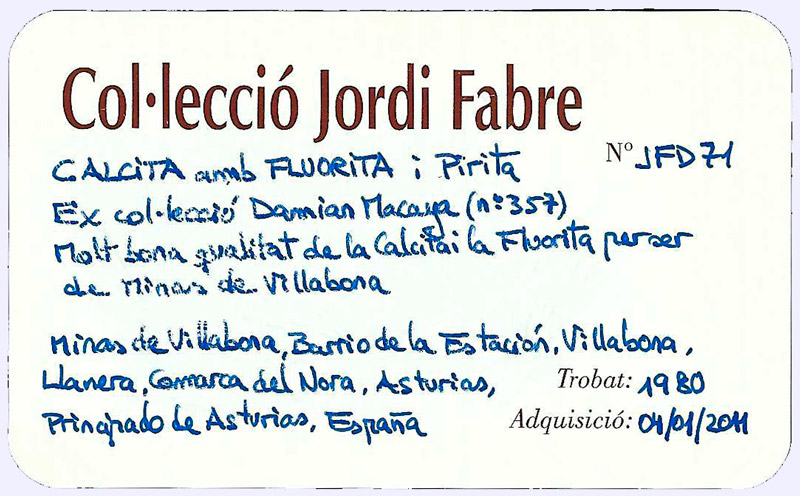 Col·lecció Jordi Fabre
CALCITA amb FLUORITA i Pirita Nº JFD71
Ex col·lecció Damian Macaya (nº 357)
Molt bona qualitat de la Calcita i la Fluorita per ser
de Minas de Villabona
Minas de Villabona, Barrio de la Estación, Villabona,
Llanera, Comarca del Nora, Asturias, Trobat: 1980
Principado de Asturias, España Adquisició: 04/01/2011